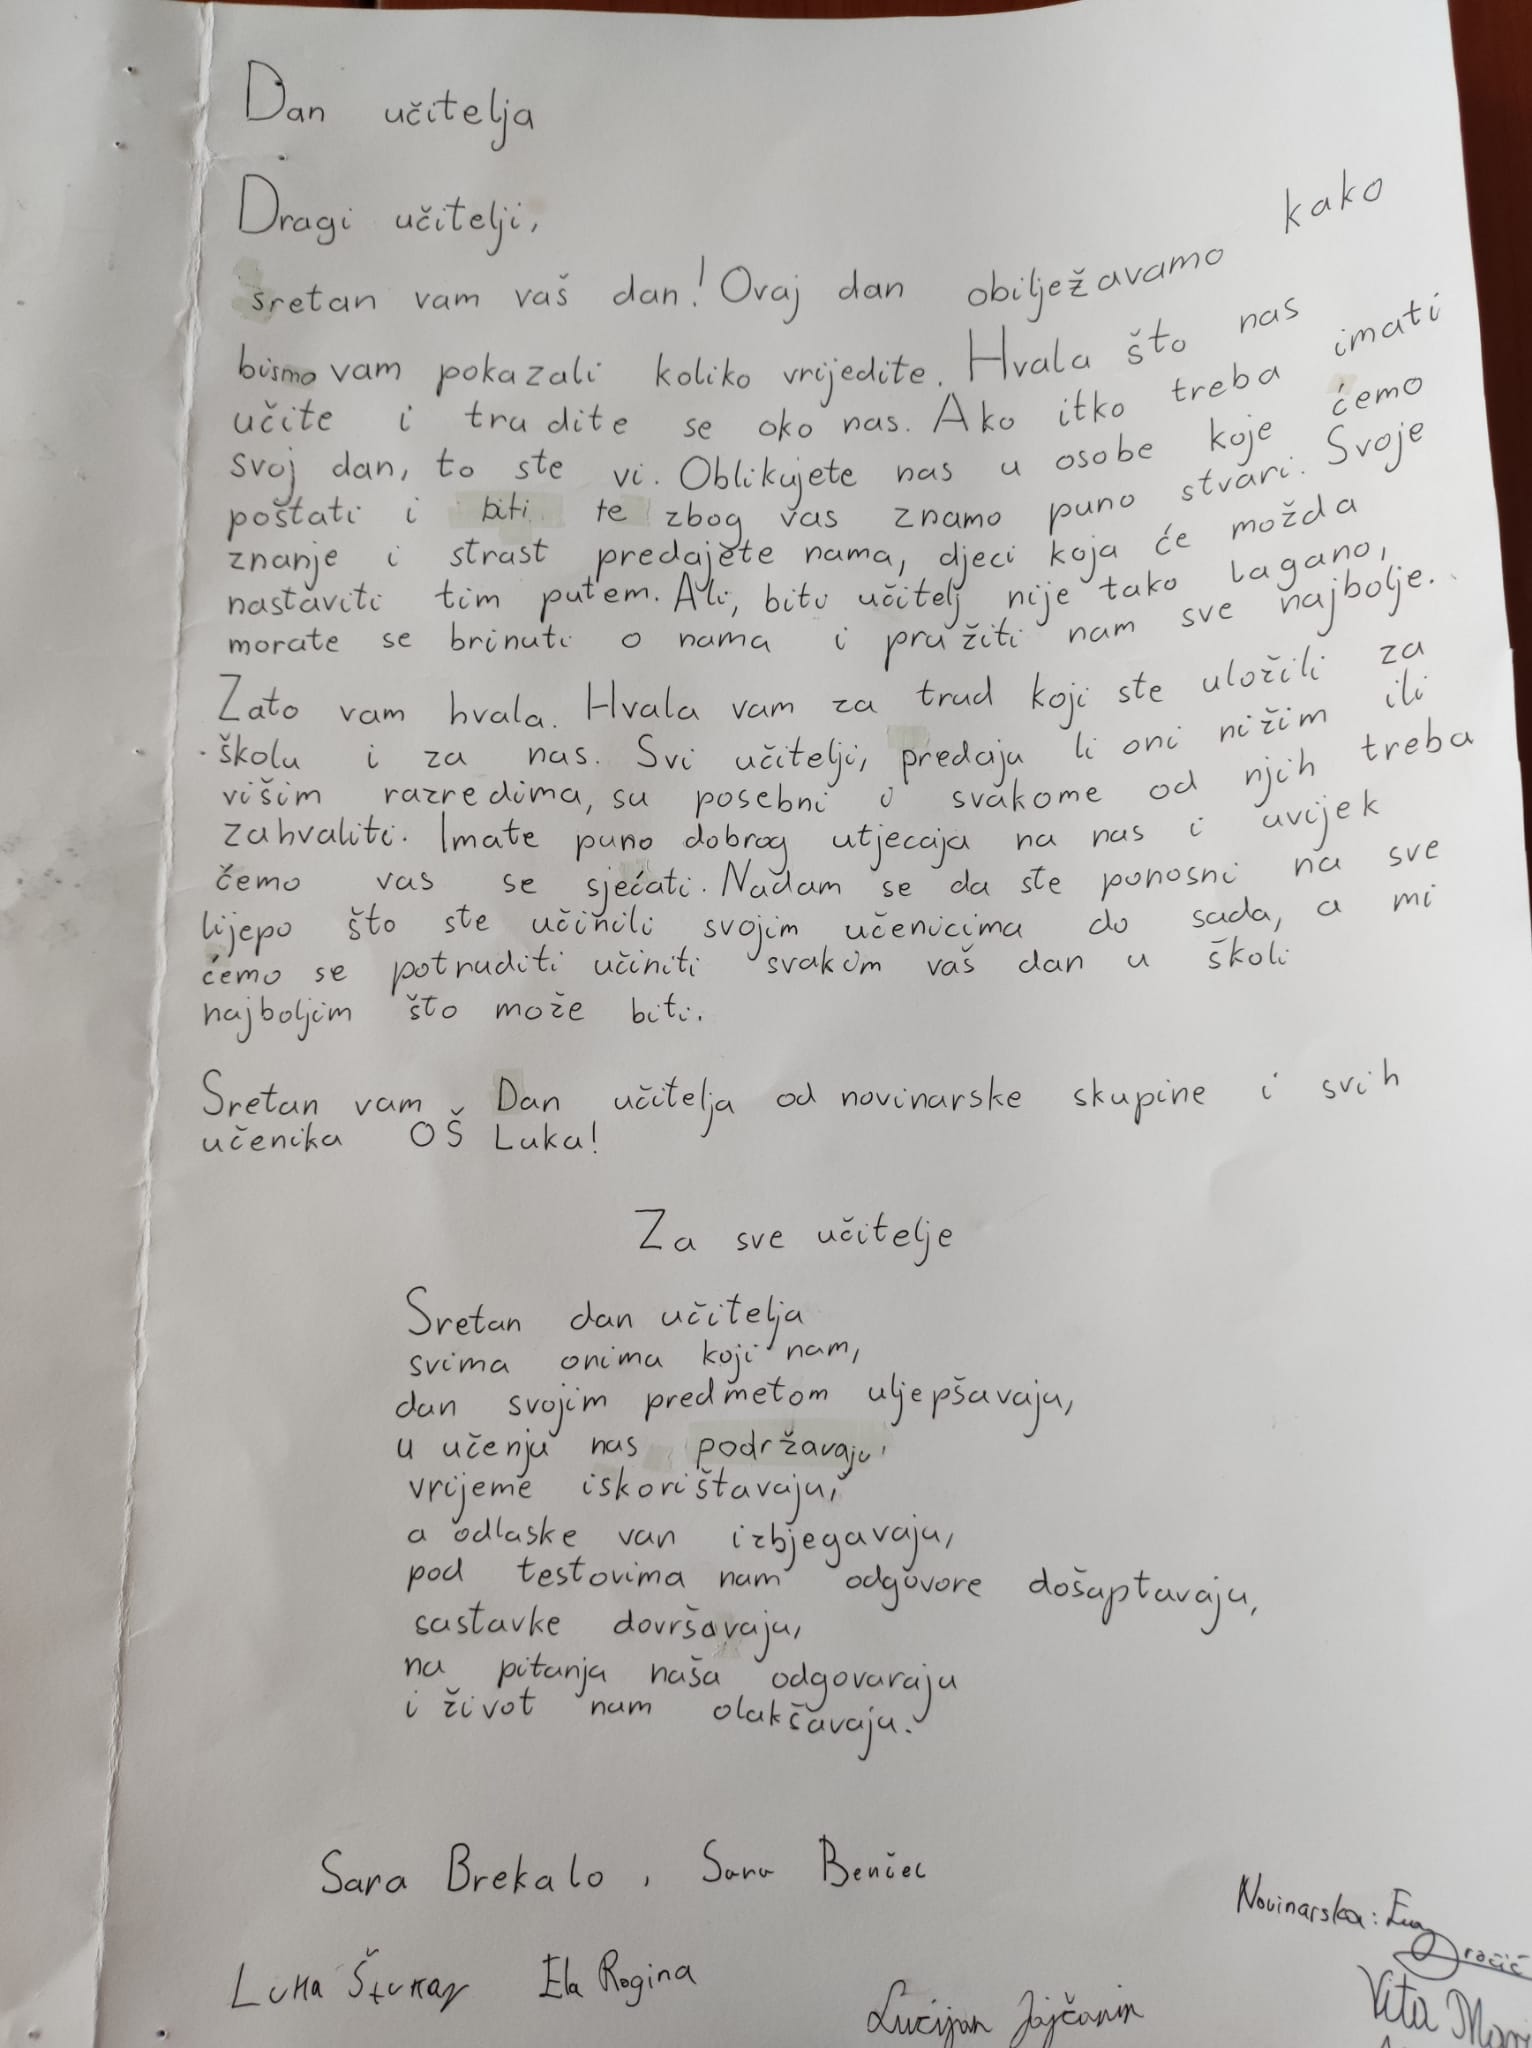 Dan učitelja
Dragi učitelji,
sretan vam vaš dan! Ovaj dan obilježavamo kako
bismo vam pokazali koliko vrijedite. Hvala što nas
učite i trudite se oko nas. Ako itko treba imati
svoj dan, to ste vi. Oblikujete nas u osobe koje ćemo
poštati i biti te zbog vas znamo puno stvari. Svoje
znanje i strast predajete nama, djeci koja će možda
nastaviti tim putem. Ali, biti učitelj nije tako lagano,
morate se brinuti o nama i pružiti nam sve najbolje.
Zato vam hvala. Hvala vam za trud koji ste uložili za
školu i za nas. Svi učitelji, predaju li oni nižim ili
višim razredima, su posebni i svakome od njih treba
zahvaliti. Imate puno dobrog utjecaja na nas i uvijek
čemo vas se sjećati. Nadam se da ste ponosni na sve
lijepo što ste učinili svojim učenicima do sada, a mi
ćemo se potruditi učiniti svakim vaš dan u školi
najboljim što može biti.
Sretan vam Dan učitelja od novinarske skupine i svih
učenika OŠ Luka!
Za sve učitelje
Sretan dan učitelja
svima onima koji nam,
dan svojim predmetom uljepšavaju,
u učenju nas podržavaju,
vrijeme iskorištavaju,
a odlaske van izbjegavaju,
pod testovima nam odgovore došaptavaju,
sastavke dovršavaju,
na pitanja naša odgovaraju
i život nam olakšavaju.
Sara Brekalo, Sara Benčec
Novinarska: Eva
Luka Ela Rogina
Lucijan Jajčanin
Vita